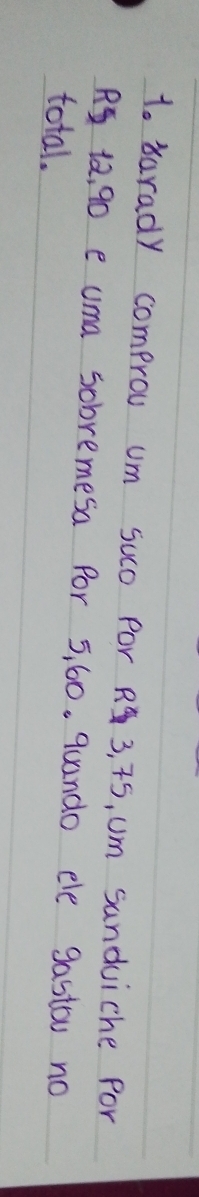 1. Yarady comprou um suco por R$ 3,75, um sanduiche por
R$ 12,90 e uma sobremesa por 5,60. quando ele gastou no
total.